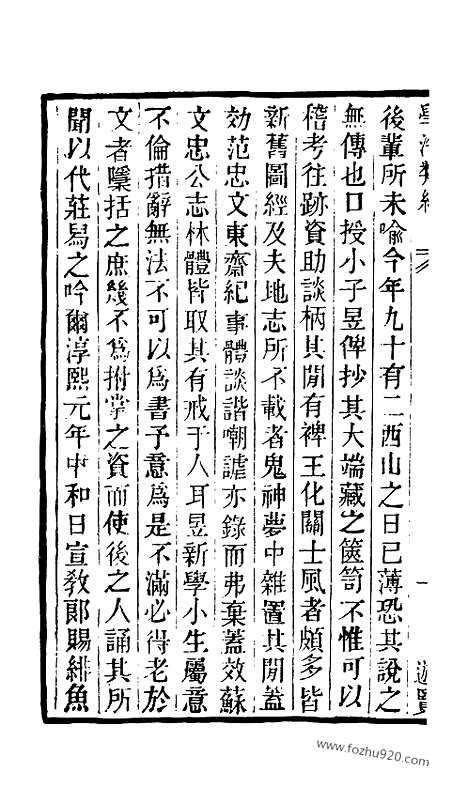 後輩所未喻今年九十有二西山之日已薄恐其說之
無傳也口授小子昱俾抄其大端藏之篋笥不惟可以
稽考往跡資助談柄其閒有裨王化關士風者頗多皆
新舊圖經及夫地志所不載者鬼神夢中雜置其閒蓋
効范忠文東齋紀事體談諧嘲謔亦錄而弗棄蓋效蘇
文忠公志林體皆取其有戒于人耳昱新學小生屬意
不倫措辭無法不可以爲書予意爲是不滿必得老於
文者檃括之庶幾不爲拊掌之資而使後之人誦其所
聞以代莊舄之吟爾淳熙元年中和日宣敎郞賜緋魚
www.fozhu920.com